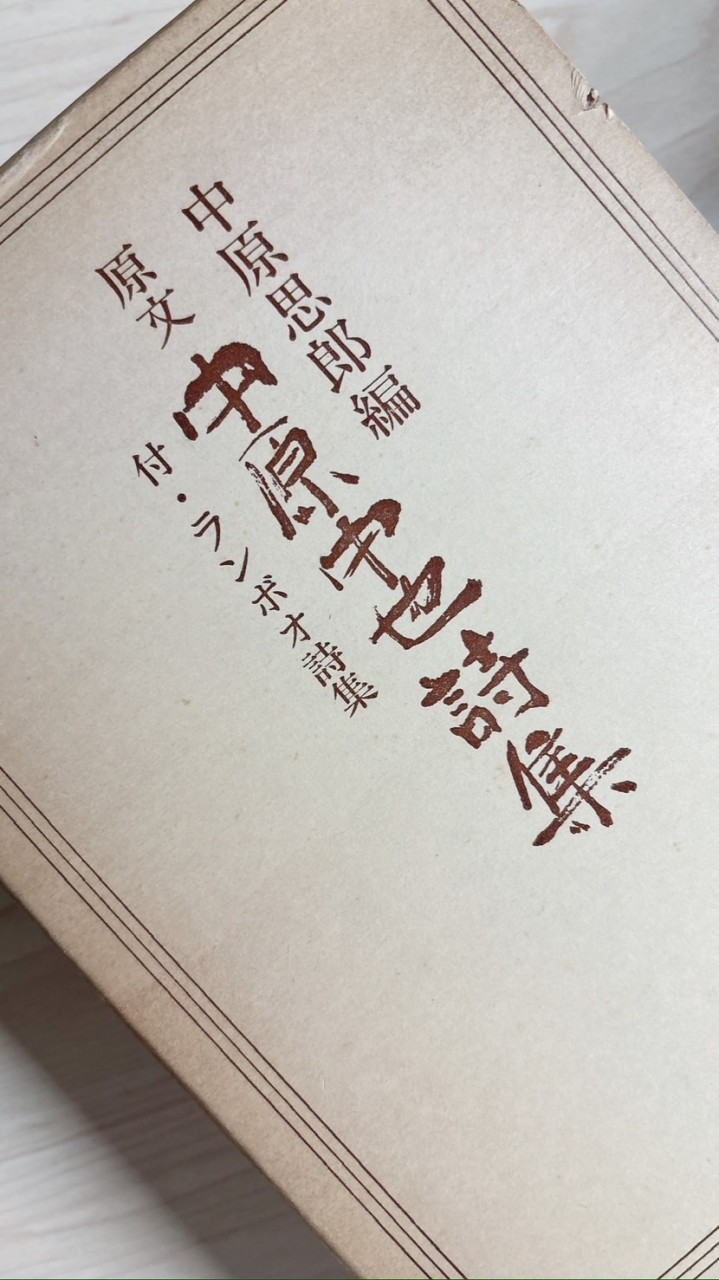 中原思郎編
原文
中原中也詩集
付・ランボオ詩集